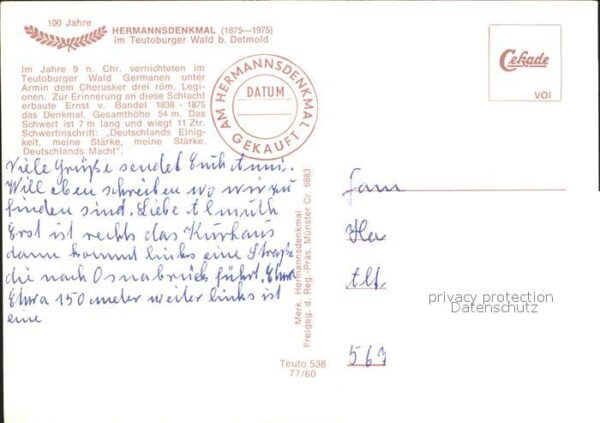 100 Jahre
HERMANNSDENKMAL (1875—1975)
im Teutoburger Wald b. Detmold
Im Jahre 9 n. Chr. vernichteten im
Teutoburger Wald Germanen unter
Armin dem Cherusker drei röm. Legi-
onen. Zur Erinnerung an diese Schlacht
erbaute Ernst v. Bandel 1838 - 1875
das Denkmal. Gesamthöhe 54 m. Das
Schwert ist 7 m lang und wiegt 11 Ztr.
Schwertinschrift: „Deutschlands Einig-
keit, meine Stärke, meine Stärke,
Deutschlands Macht".
AM HERMANNSDENKMAL
DATUM
GEKAUFT
Cekade
VOI
Viele Grüße sendet Euch Anni.
Will eben schreiben wo wir zu
finden sind. Liebe Almuth
Erst ist rechts das Kurhaus
dann kommt links eine Straße
die nach Osnabrück führt. Etwa
Etwa 150 meter weiter links ist
eine
Merk. Hermannsdenkmal
Freigeg. d. Reg.-Präs. Münster Cr. 6883
Teuto 538
77/60
Fam
Her
567
privacy protection
Datenschutz